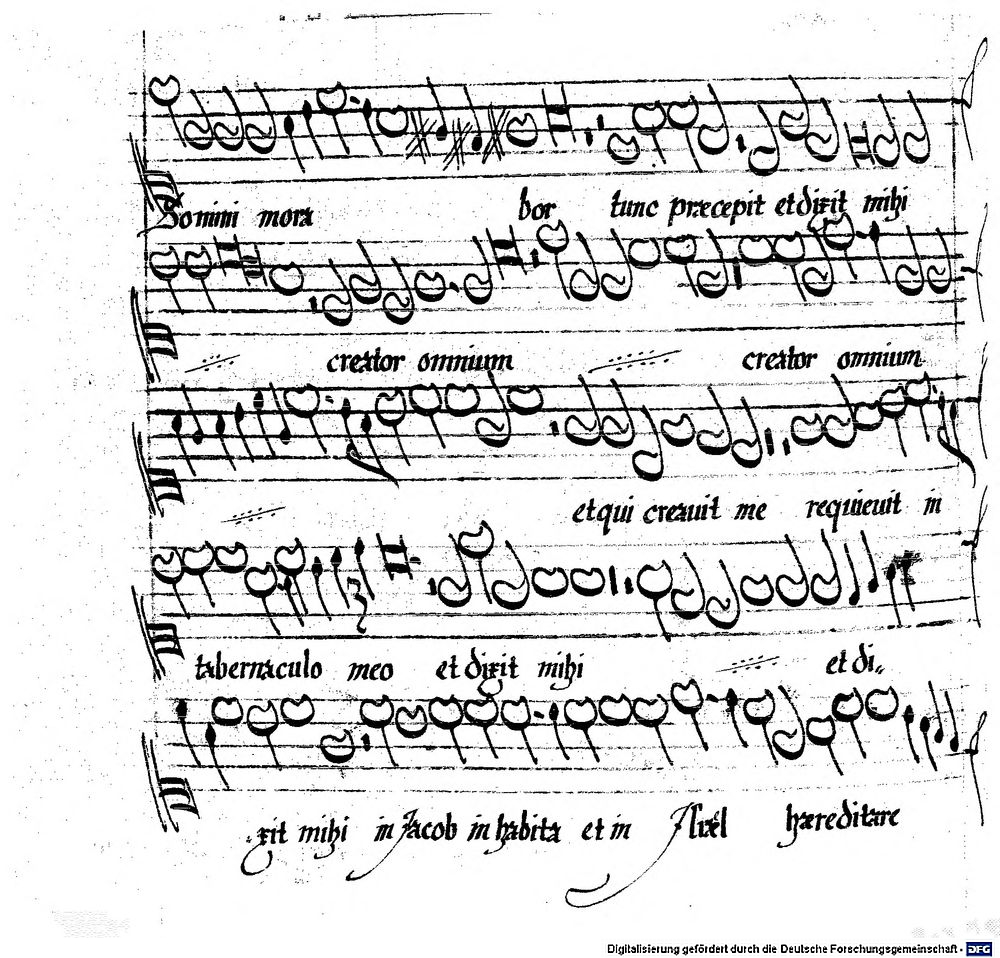 Domini mora bor tunc præcepit et dixit mihi
creator omnium creator omnium
et qui creauit me requieuit in
tabernaculo meo et dixit mihi et di„
xit mihi in Jacob inhabita et in Israel hæreditare
Digitalisierung gefördert durch die Deutsche Forschungsgemeinschaft - DFG